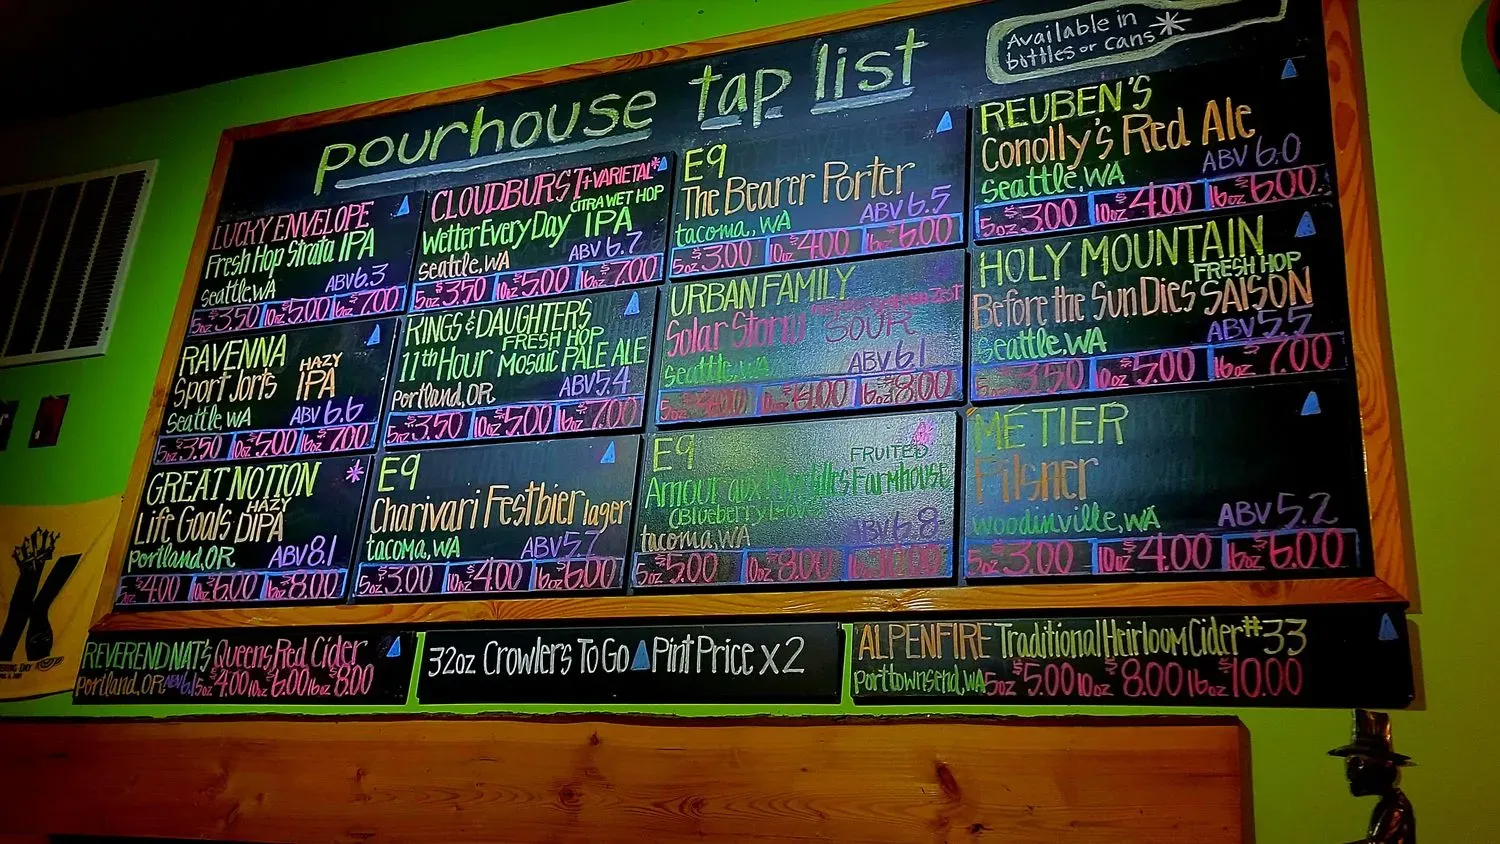 pourhouse tap list
Available in
bottles or cans*
LUCKY ENVELOPE
Fresh Hop Strata IPA
Seattle, WA ABV 6.3
5oz $3.50 10oz $5.00 16oz $7.00
RAVENNA
Sport Jorts HAZY IPA
Seattle WA ABV 6.6
5oz $3.50 10oz $5.00 16oz $7.00
GREAT NOTION *
Life Goals HAZY DIPA
Portland, OR ABV 8.1
5oz $4.00 10oz $6.00 16oz $8.00
CLOUDBURST + VARIETAL*
Wetter Every Day CITRA WET HOP IPA
Seattle, WA ABV 6.7
5oz $3.50 10oz $5.00 16oz $7.00
RINGS & DAUGHTERS
FRESH HOP
11th Hour Mosaic PALE ALE
Portland, OR ABV 5.4
5oz $3.50 10oz $5.00 16oz $7.00
E9
Charivari Festbier lager
tacoma, WA ABV 5.7
5oz $3.00 10oz $4.00 16oz $6.00
E9
The Bearer Porter
tacoma, WA ABV 6.5
5oz $3.00 10oz $4.00 16oz $6.00
URBAN FAMILY
Solar Storm SOUR
Seattle, WA ABV 6.1
5oz 10oz $6.00 16oz $8.00
E9 *
FRUITED
Amour aux Farmhouse
tacoma, WA ABV 6.8
5oz $5.00 10oz $8.00 16oz $10.00
REUBEN'S
Conolly's Red Ale
Seattle, WA ABV 6.0
5oz $3.00 10oz $4.00 16oz $6.00
HOLY MOUNTAIN
FRESH HOP
Before the Sun Dies SAISON
Seattle, WA ABV 5.5
5oz $3.50 10oz $5.00 16oz $7.00
MÉTIER
Pilsner
Woodinville, WA ABV 5.2
5oz $3.00 10oz $4.00 16oz $6.00
REVEREND NAT'S Queens Red Cider
Portland, OR 5oz $4.00 10oz $6.00 16oz $8.00
32oz Crowlers To Go Pint Price x 2
ALPENFIRE Traditional Heirloom Cider #33
Port townsend, WA 5oz $5.00 10oz $8.00 16oz $10.00